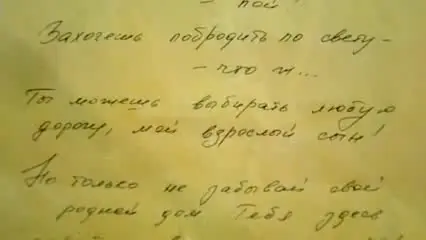 – пой!
Захочешь побродить по свету –
– что ж...
Ты можешь выбирать любую
дорогу, мой взрослый сын!
Но только не забывай свой
родной дом Тебя здесь